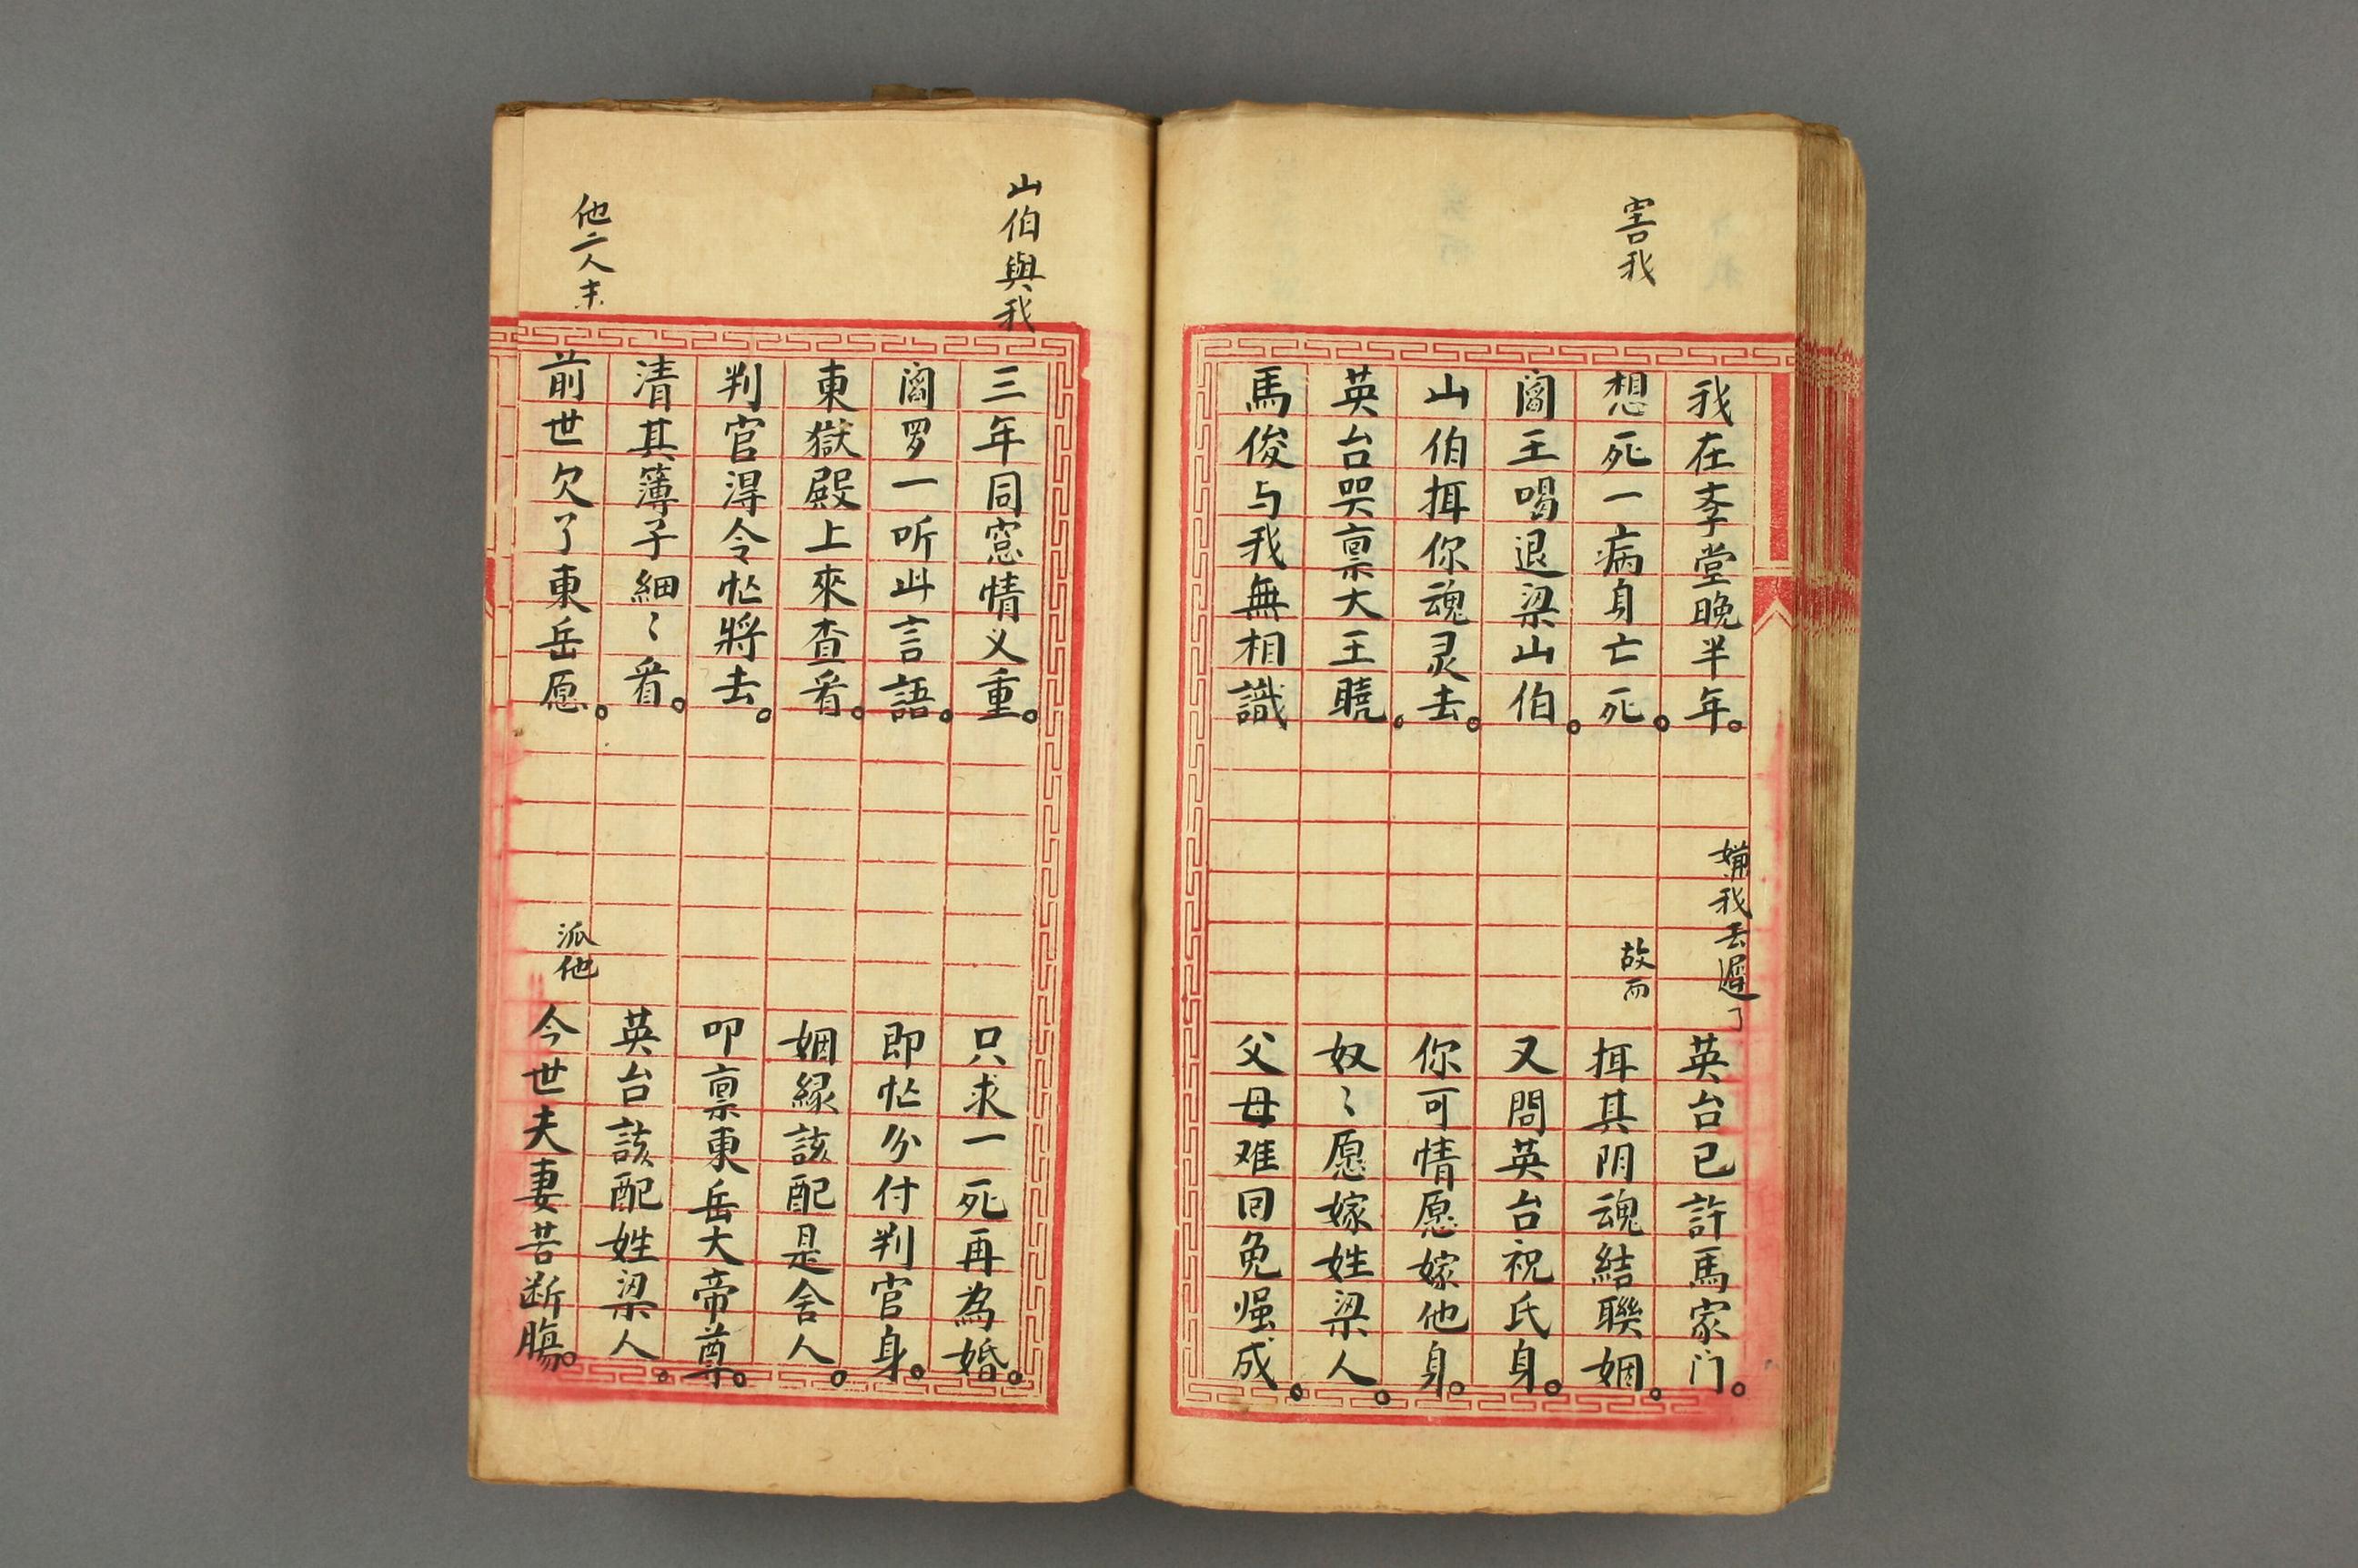 我在斈堂晚半年。
嫌我去遲了
英台已許馬家门。
害我
想死一病身亡死。
故而
挕其阴魂結聯姻。
閻王喝退梁山伯。
又問英台祝氏身。
山伯挕你魂灵去。
你可情愿嫁他身。
英台哭禀大王曉。
奴〻愿嫁姓梁人。
馬俊与我無相識
父母难回免强成。
山伯與我
三年同窓情义重。
只求一死再為婚。
閻罗一听此言語。
即忙分付判官身。
東獄殿上來查看。
姻緣該配是舍人。
判官淂令忙將去。
叩禀東岳大帝尊。
清其簿子細〻看。
英台該配姓梁人。
他二人末
前世欠了東岳愿。
派他
今世夫妻苦断腸。